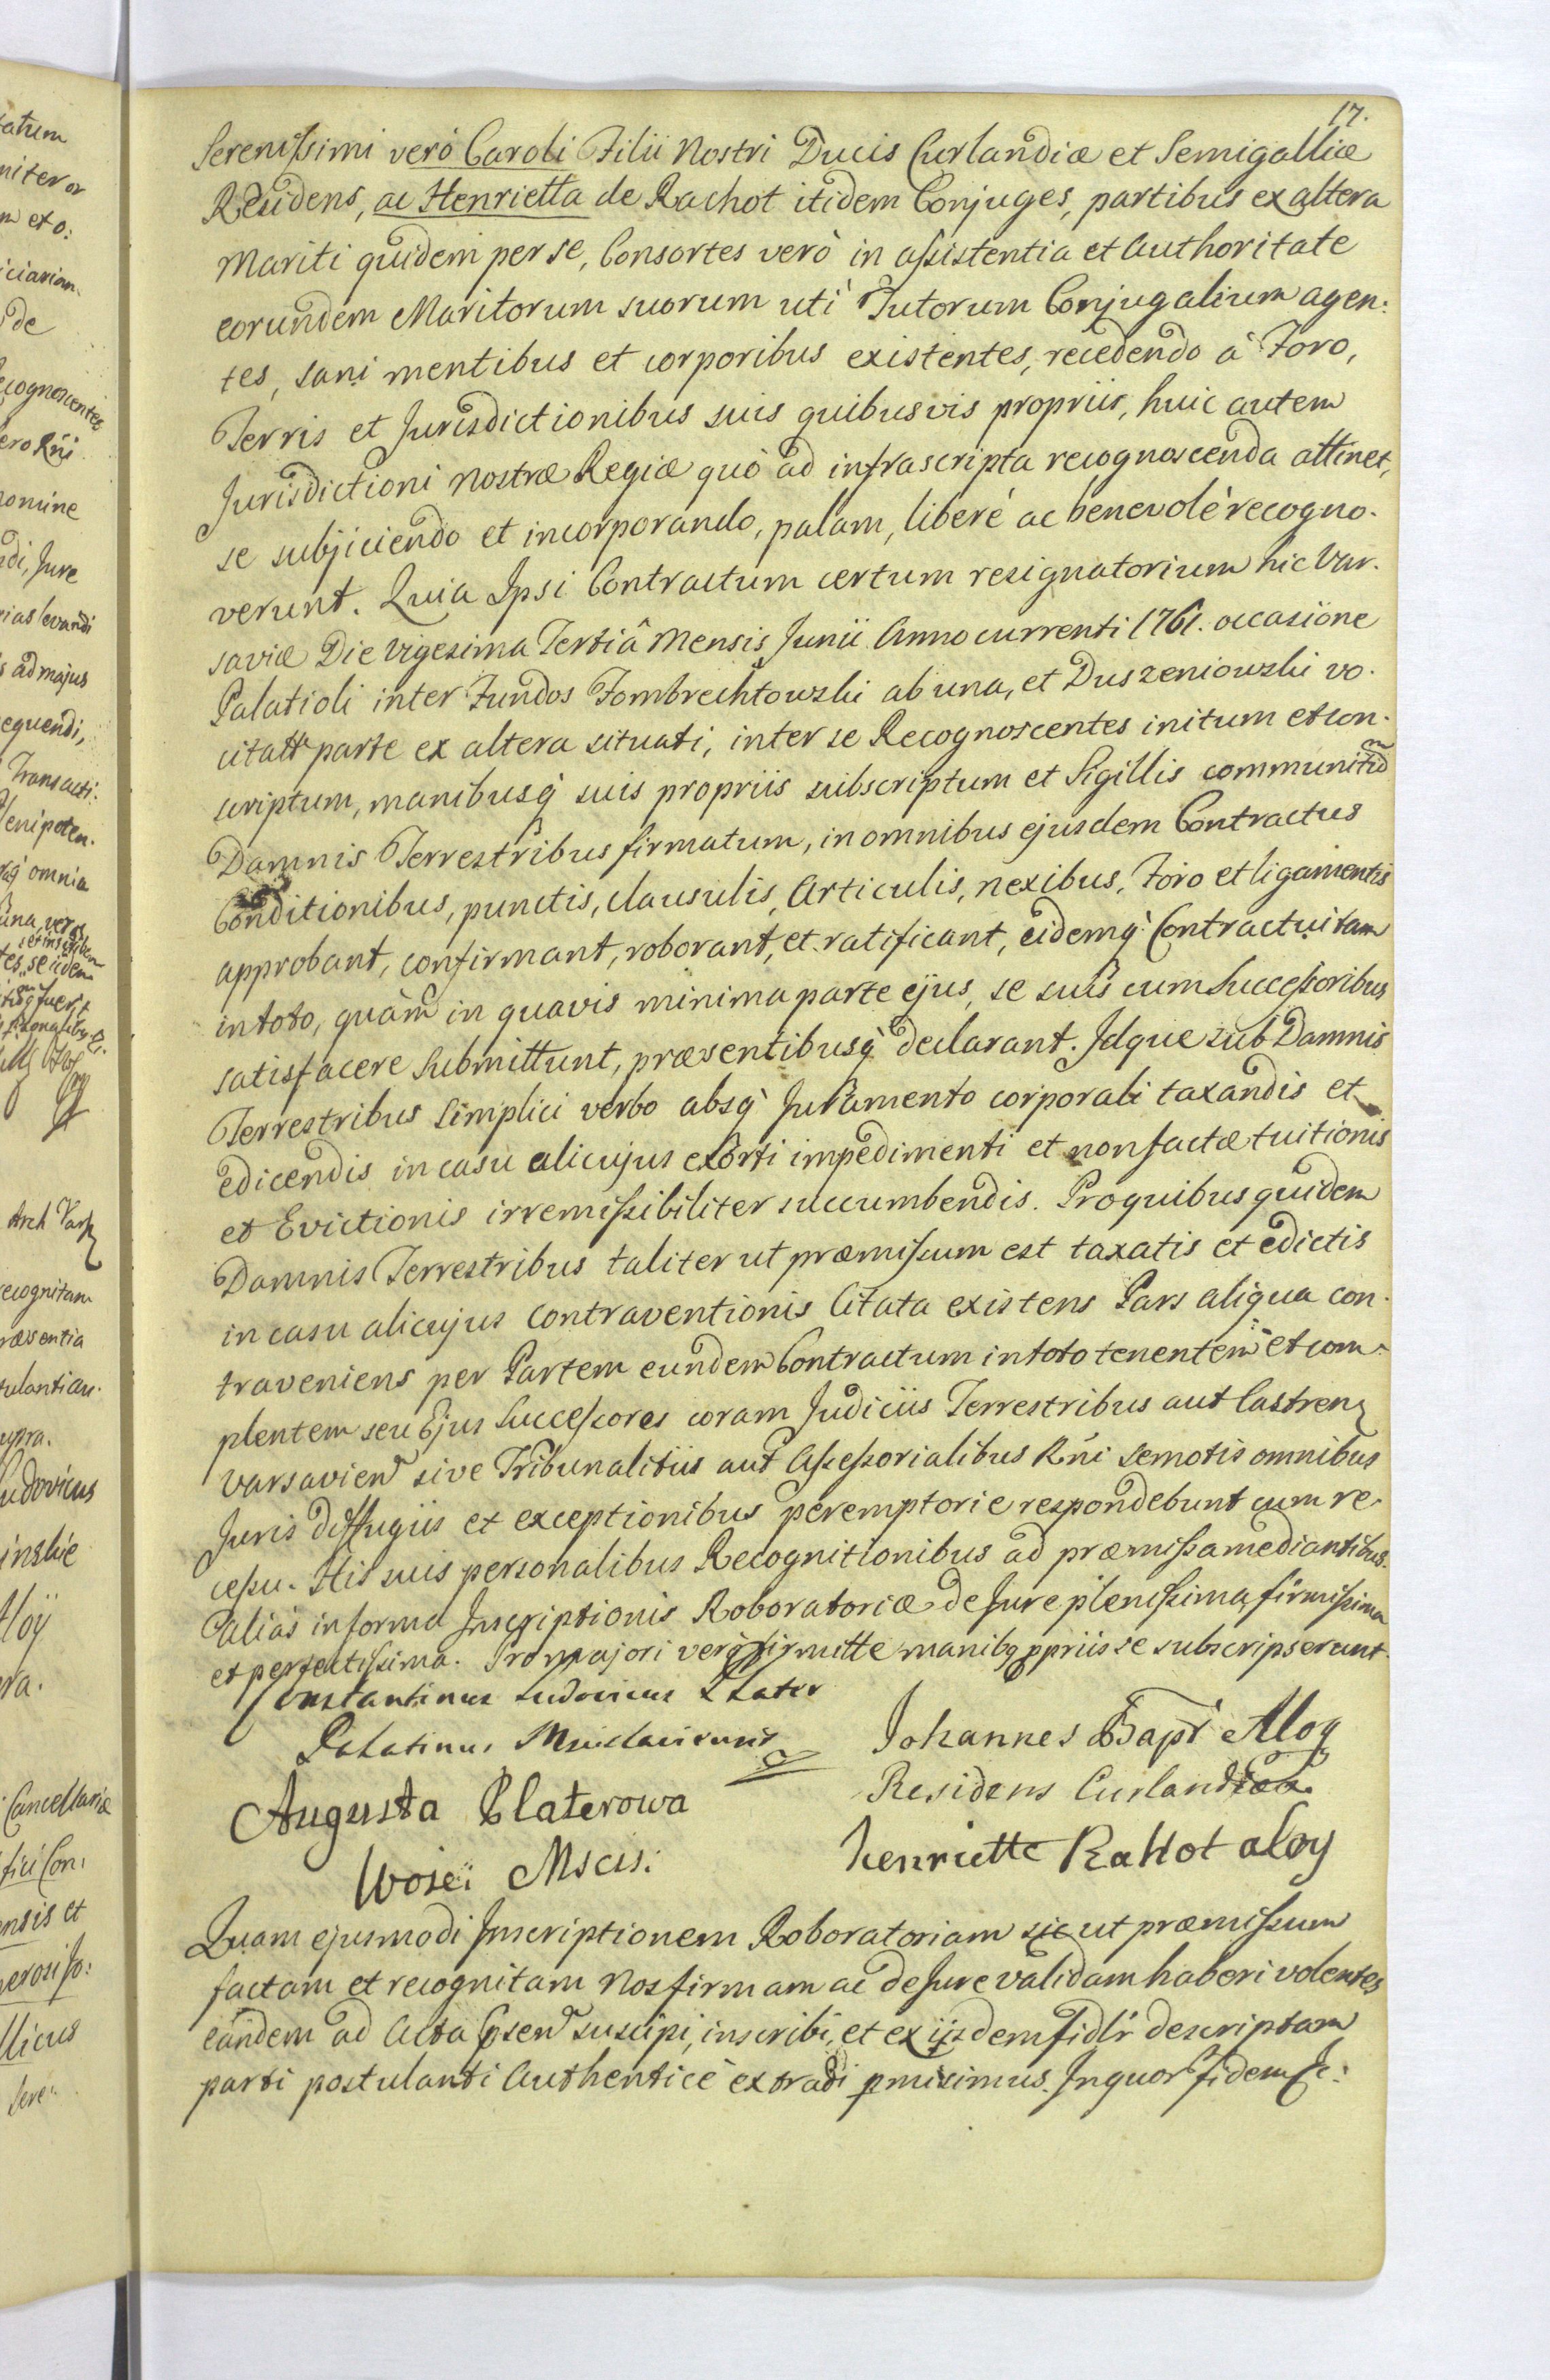 17.
Serenissimi verò Caroli Filii Nostri Ducis Curlandiæ et Semigalliæ
Residens, ac Henrietta de Rachot itidem Conjuges, partibus ex altera
Mariti quidem per se, Consortes verò in assistentia et Authoritate
eorundem Maritorum suorum uti Tutorum Conjugalium agen:
tes, sani mentibus et corporibus existentes, recedendo à Foro,
Terris et Jurisdictionibus suis quibusvis propriis, huic autem
Jurisdictioni Nostræ Regiæ quò ad infrascripta recognoscenda attinet,
se subjiciendo et incorporando, palam, liberè ac benevolè recogno.
verunt. Quia Ipsi Contractum certum resignatorium hic Var.
saviæ Die Vigesima Tertiâ Mensis Junii Anno currenti 1761. occasione
Palatioli inter Fundos Fombrechtowski ab una, et Duszeniowski vo.
citatt parte ex altera situati, inter se Recognoscentes initum et con.
scriptum, manibusq̀ suis propriis subscriptum et Sigillis communitum
Damnis Terrestribus firmatum, in omnibus ejusdem Contractus
Conditionibus, punctis, clausulis, Articulis, nexibus, Foro et ligamentis
approbant, confirmant, roborant, et ratificant, eidemq̀ Contractui tam
in toto, quàm in quavis minima parte ejus, se suis cum Successoribus
satisfacere submittunt, præsentibusq̀ declarant. Idque sub Damnis
Terrestribus simplici verbo absq̀ Juramento corporali taxandis et
edicendis in casu alicujus exorti impedimenti et non factæ tuitionis
et Evictionis irremissibiliter succumbendis. Pro quibus quidem
Damnis Terrestribus taliter ut præmissum est taxatis et edictis
in casu alicujus contraventionis Citata existens Pars aliqua con.
traveniens per Partem eundem Contractum in toto tenentem et com.
plentem seu Ejus Successores coram Judiciis Terrestribus aut Castren
Varsavien sive Tribunalitiis aut Assessorialibus Rńi semotis omnibus
Juris diffugiis et exceptionibus peremptorie respondebunt cum re.
cessu. His suis personalibus Recognitionibus ad præmissa mediantibus.
Aliàs in forma Inscriptionis Roboratoriæ de Jure plenissima, firmissima
et perfectissima. Pro majori verò firmitte manibq ppriis se subscripserunt.
Constantinus Ludovicus Plater
Palatinus Mscislaviensis
Johannes Bapt Aloy
Residens Curlandiæ
Augusta Platerowa
Woje: Mscis:
henriette Rattot aloy
Quam ejusmodi Inscriptionem Roboratoriam sic ut præmissum
factam et recognitam Nos firmam ac de Jure validam haberi volentes
eandem ad Acta psen suscipi, inscribi, et ex iisdem fidlr descriptam
parti postulanti Authenticè extradi pmisimus. In quor fidem &c: